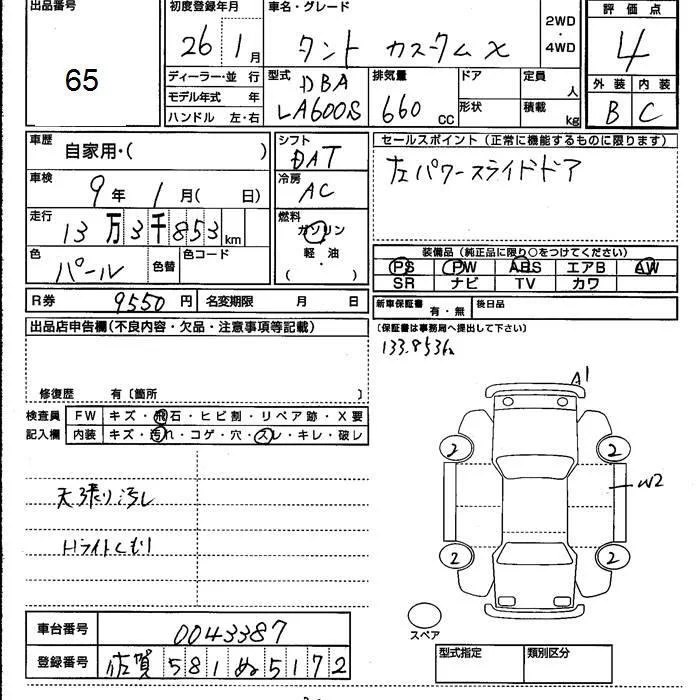 出品番号
65
初度登録年月
26年1月
車名・グレード
タント カスタムX
2WD
・
4WD
評価点
4
外装 内装
B C
ディーラー・並 行
モデル年式 年
ハンドル 左・右
型式
DBA
LA600S
排気量
660 CC
ドア
形状
定員
人
積載
kg
車歴
自家用・( )
車検
9年 1月( 日)
走行
13万3千853km
色
パール
色替
色コード
シフト
DAT
冷房
AC
燃料
ガソリン
・
軽・油
( )
セールスポイント (正常に機能するものに限ります)
左パワースライドドア
装備品 (純正品に限り○をつけてください)
PS PW ABS エアB AW
SR ナビ TV カワ
R券 9550円
名変期限 月 日
新車保証書 有・無
後日品
(保証書は事務局へ提出して下さい)
133.853km
出品店申告欄(不良内容・欠品・注意事項等記載)
修復歴 有〔箇所 〕
検査員
記入欄
FW キズ・飛石・ヒビ割・リペア跡・X要
内装 キズ・汚れ・コゲ・穴・スレ・キレ・破レ
天張り汚れ
Hライトくもり
A1
2 2
W2
2 2
スペア
車台番号 0043387
登録番号 佐賀 581 ぬ 5172
型式指定
類別区分